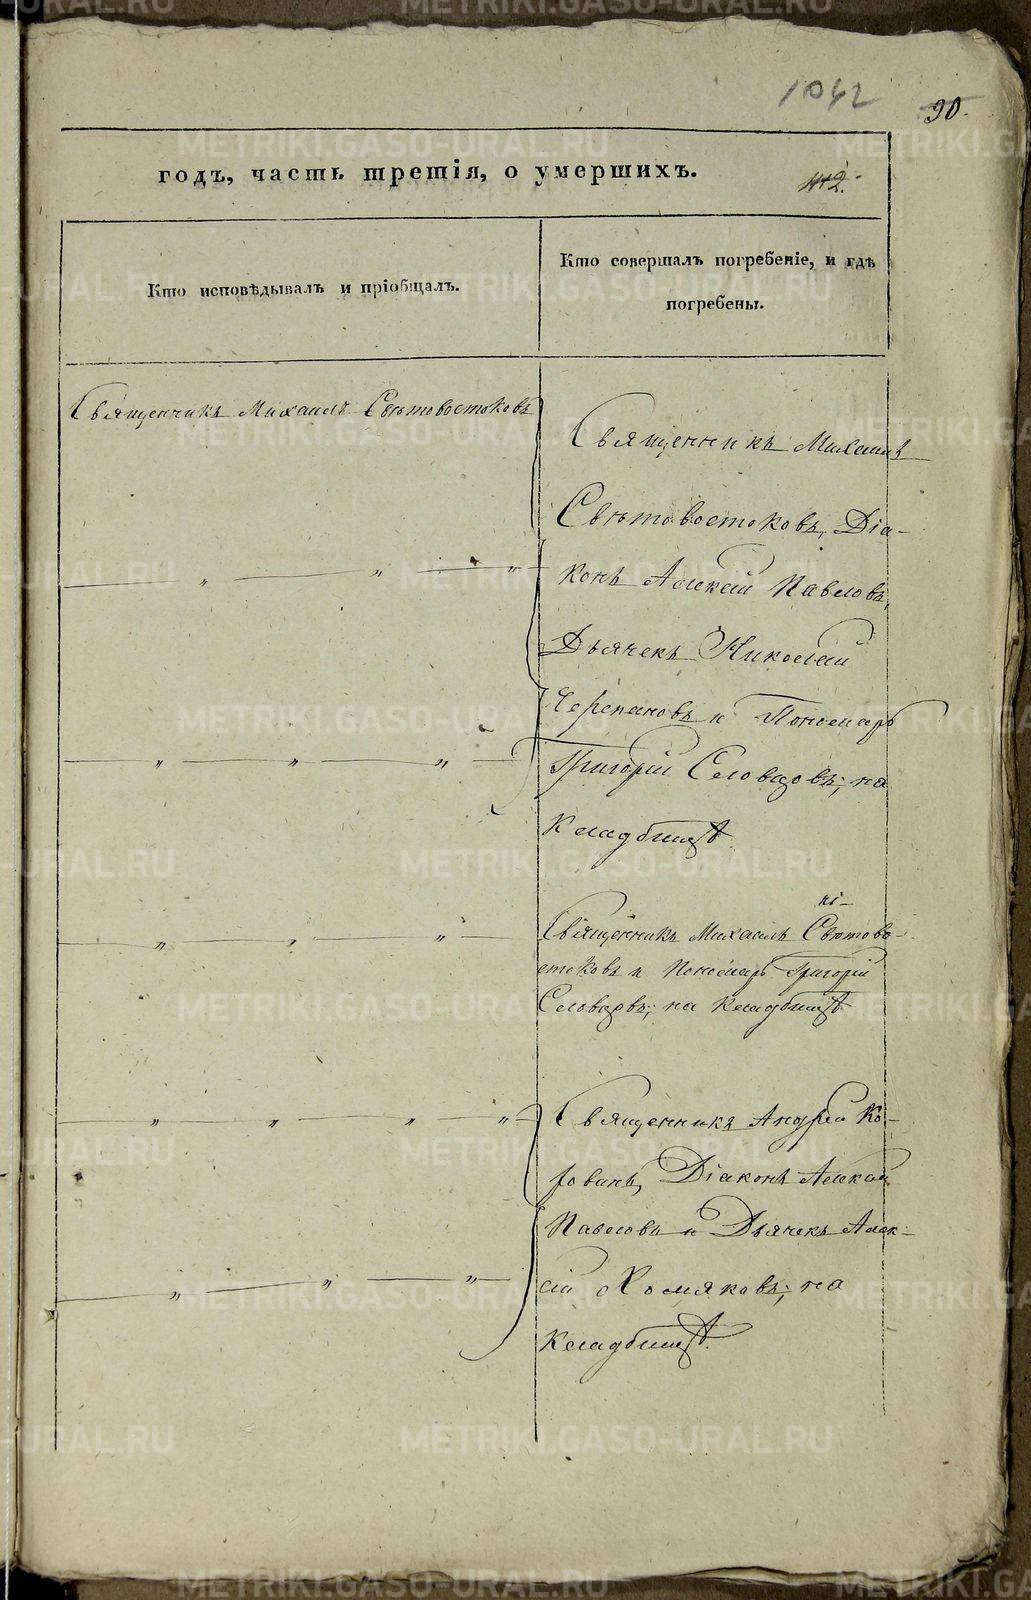 1042
90.
годъ, часть третія, о умершихъ.
112.
Кто исповѣдывалъ и пріобщалъ.
Кто совершалъ погребеніе, и гдѣ
погребены.
Священникъ Михаилъ Свѣтовостоковъ
Священникъ Михаилъ
Свѣтовостоковъ, Діа-
конъ Алексѣй Павловъ,
Дьячекъ Николай
Черепановъ и Пономарь
Григорій Словцовъ; на
Кладбищѣ.
Священникъ Михаилъ Свѣтово-
стоковъ и Пономарь Григорій
Словцовъ; на Кладбищѣ
Священникъ Андрей Ко-
ровинъ, Діаконъ Алексѣй
Павловъ и Дьячекъ Алек-
сій Хомяковъ; на
Кладбищѣ.
METRIKI.GASO-URAL.RU